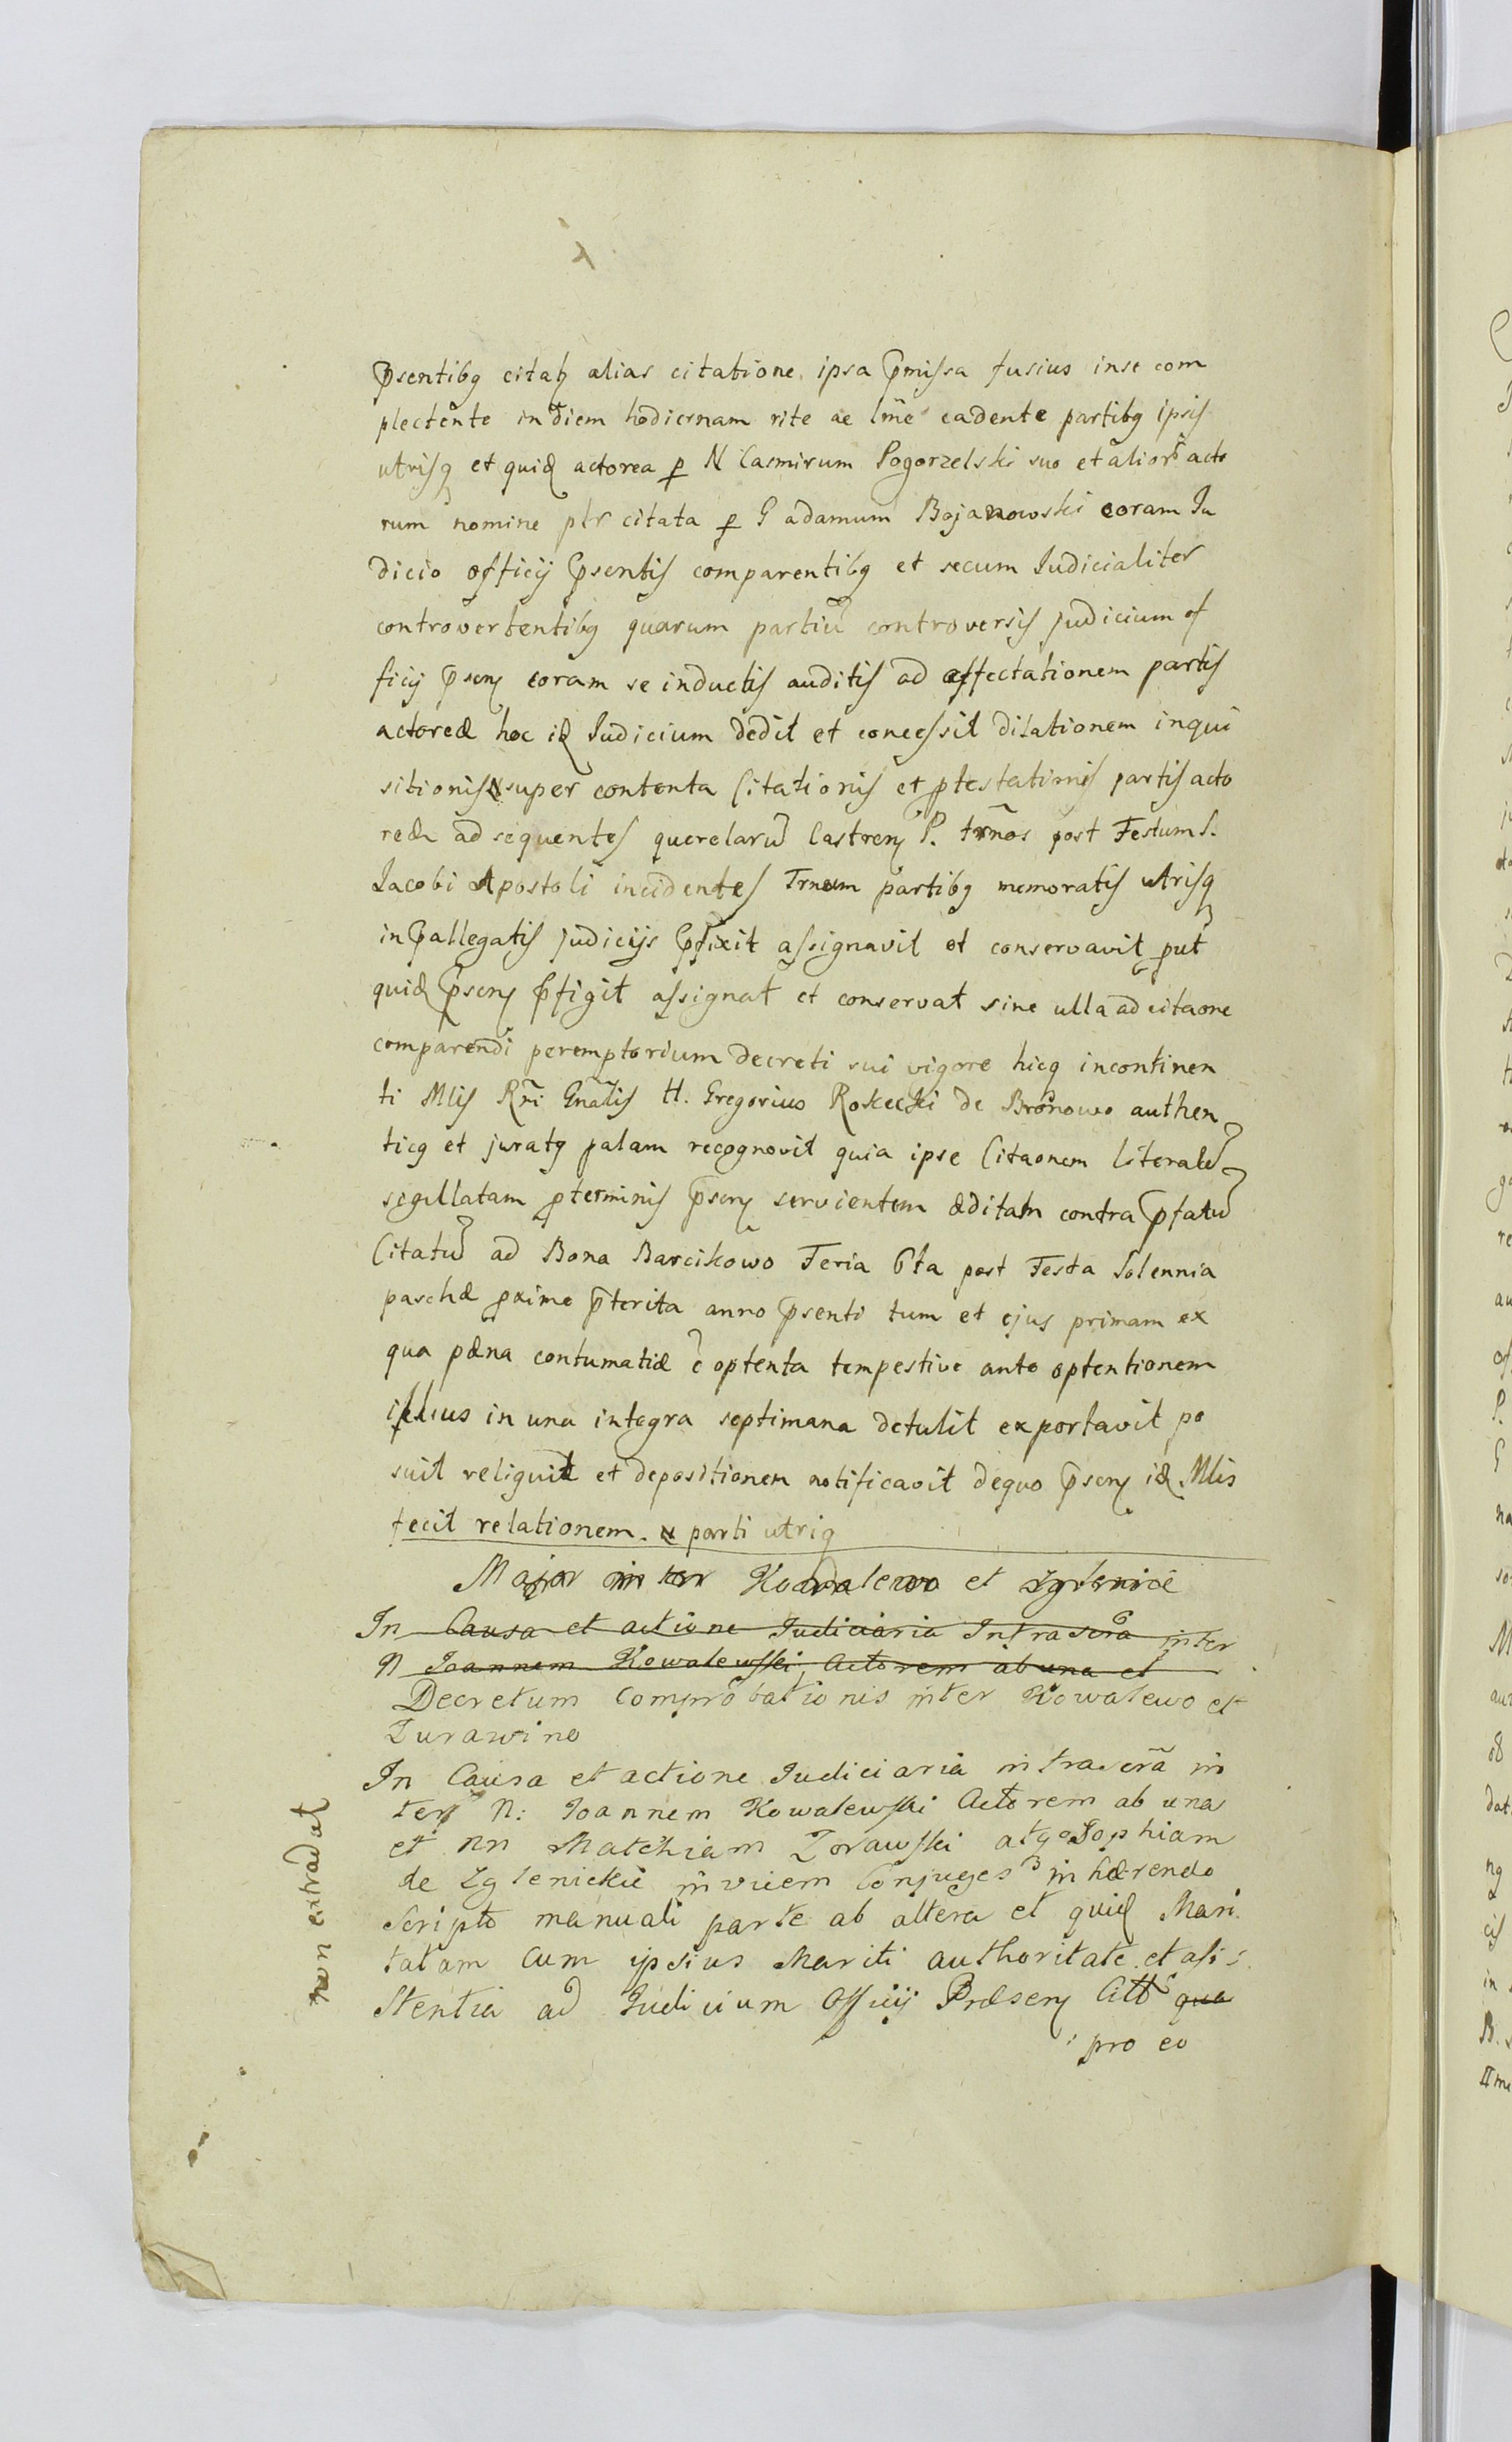 p̄sentibq citatq alias citatione ipsa p̄missa fusius inse com
plectente in diem hodiernam rite ac lm̄e cadente partibq ipsis
utrisq et quid actorea p N Casmirum Pogorzelski suo et alior acto
rum nomine ptr citata p G adamum Bojanowski coram Ju
dicio officij p̄sentis comparentibq et secum Judicialiter
controvertentibq quarum partiu controversis judicium of
ficij p̄sens coram se inductis auditis ad affectationem partis
actoreæ hoc id Judicium dedit et concessit dilationem inqui
sitionis super contenta Citationis et ptestationis partis acto
reæ ad sequentes querelaru Castren P. trn̄os post Festum S.
Jacobi Apostoli incidentes Trnum partibq memoratis utrisq
in p̄allegatis judicijs p̄fixit assignavit et conservavit put
quid p̄sens p̄figit assignat et conservat sine ulla adcitaone
comparendi peremptorium decreti sui vigore hicq incontinen
ti Mlis Rn̄i Gnalis H. Gregorius Rokecki de Bronowo authen
ticq et juratq palam recognovit quia ipse Citaonem literale
sigillatam pterminis p̄sens servientem æditam contra p̄fatu
Citatu ad Bona Barcikowo Feria 6ta post Festa Solennia
paschæ pxime p̄terita anno p̄senti tum et ejus primam ex
qua pæna contumatiæ ē optenta tempestive ante optentionem
illius in una integra septimana detulit exportavit po
suit reliquit et depositionem notificavit dequo p̄sens id Mlis
fecit relationem. parti utriq
Major inter Kowalewo et Zglenice
In Causa et actione Judiciaria Infrascra inter
N Joannem Kowalewski Actorem ab una et
Decretum Comprobationis inter Kowalewo et
Zurawino
In Causa et actione Judiciaria infrascrā in
ter N: Joannem Kowalewski Actorem ab una
et NN Mathiam Zorawski atq Sophiam
de Zglenickie invicem Conjuges inhærendo
Scripto manuali parte ab altera et quid Mari
tatam cum ipsius Mariti authoritate et assi
stentia ad Judicium Officij Præsens Citt qua
pro eo
non extradat